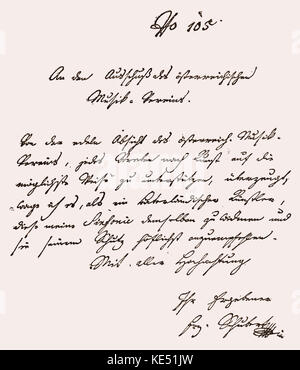 No 105.
An den Ausschuß des österreichischen
Musik-Vereins.
Von der edeln Absicht des österreich. Musik-
Vereins, jedes Streben nach Kunst auf die
möglichste Weise zu unterstützen, überzeugt,
wage ich es, als ein vaterländischer Künstler,
diese meine Sinfonie demselben zu widmen und
sie seinem Schutz höflichst anzuempfehlen.
Mit aller Hochachtung
Ihr Ergebener
Frz. Schubert
alamy
KE51JW